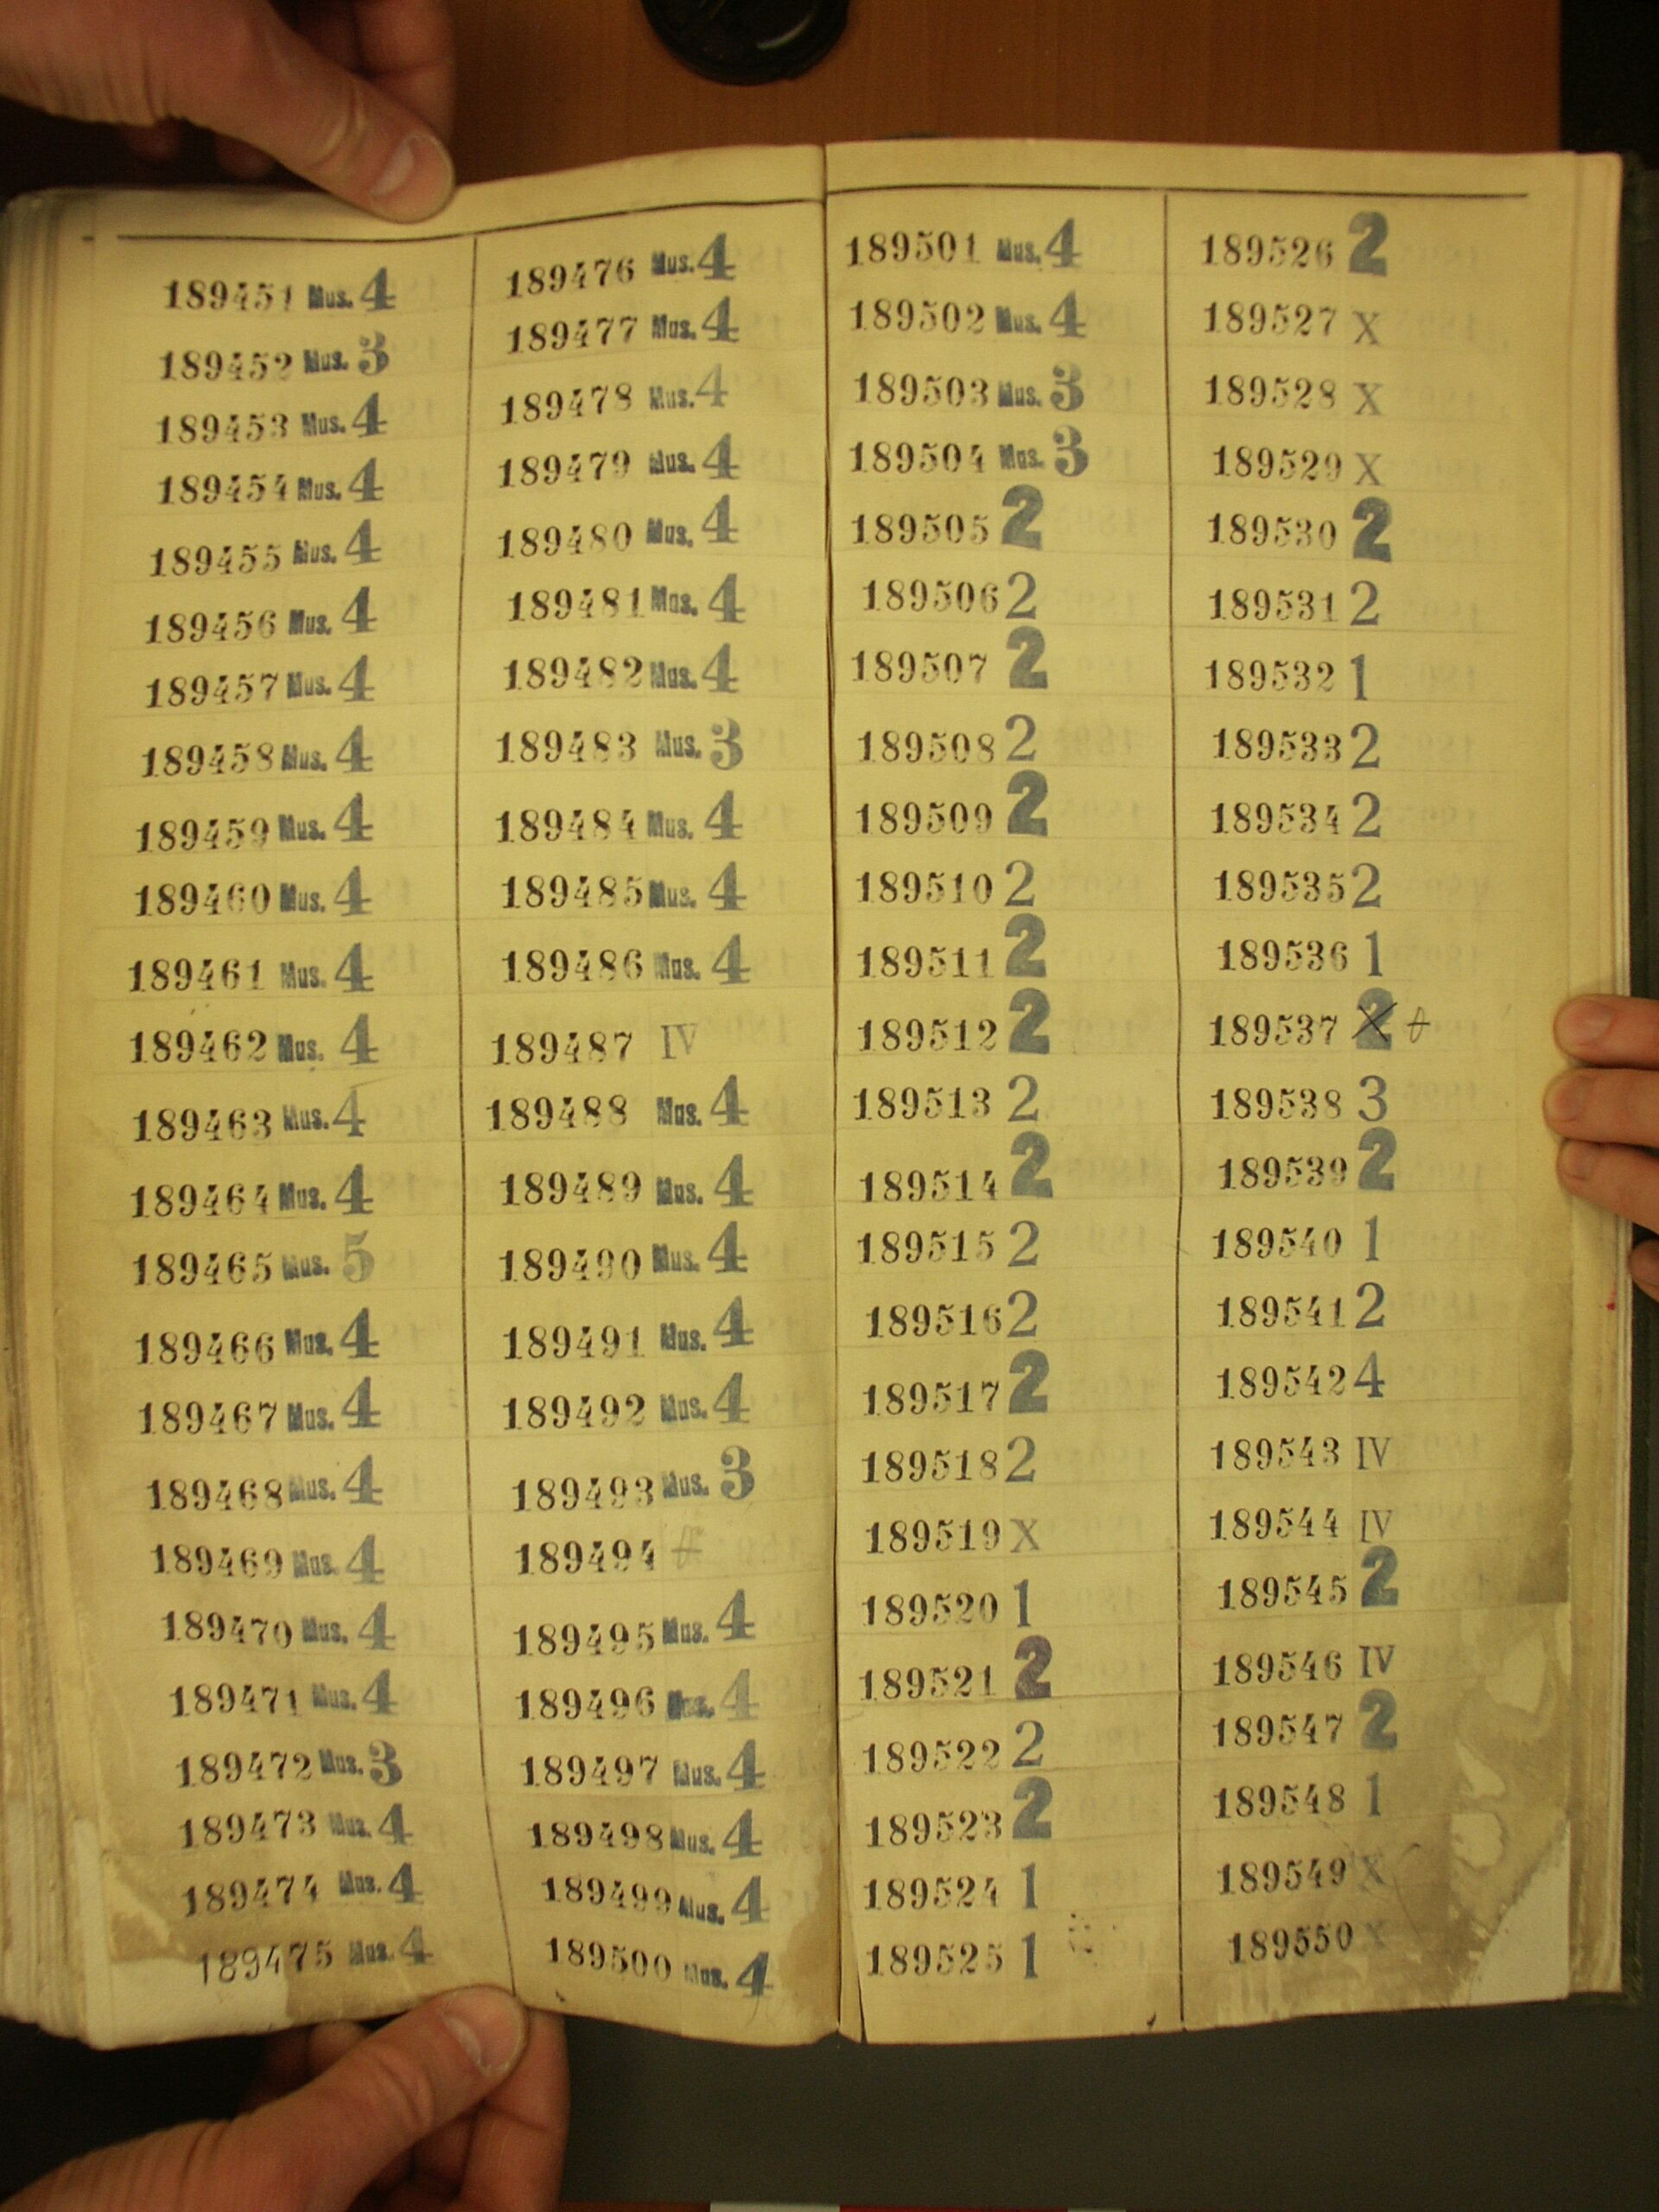 189451 Mus. 4
189452 Mus. 3
189453 Mus. 4
189454 Mus. 4
189455 Mus. 4
189456 Mus. 4
189457 Mus. 4
189458 Mus. 4
189459 Mus. 4
189460 Mus. 4
189461 Mus. 4
189462 Mus. 4
189463 Mus. 4
189464 Mus. 4
189465 Mus. 5
189466 Mus. 4
189467 Mus. 4
189468 Mus. 4
189469 Mus. 4
189470 Mus. 4
189471 Mus. 4
189472 Mus. 3
189473 Mus. 4
189474 Mus. 4
189475 Mus. 4
189476 Mus. 4
189477 Mus. 4
189478 Mus. 4
189479 Mus. 4
189480 Mus. 4
189481 Mus. 4
189482 Mus. 4
189483 Mus. 3
189484 Mus. 4
189485 Mus. 4
189486 Mus. 4
189487 IV
189488 Mus. 4
189489 Mus. 4
189490 Mus. 4
189491 Mus. 4
189492 Mus. 4
189493 Mus. 3
189494
189495 Mus. 4
189496 Mus. 4
189497 Mus. 4
189498 Mus. 4
189499 Mus. 4
189500 Mus. 4
189501 Mus. 4
189502 Mus. 4
189503 Mus. 3
189504 Mus. 3
189505 2
189506 2
189507 2
189508 2
189509 2
189510 2
189511 2
189512 2
189513 2
189514 2
189515 2
189516 2
189517 2
189518 2
189519 X
189520 1
189521 2
189522 2
189523 2
189524 1
189525 1
189526 2
189527 X
189528 X
189529 X
189530 2
189531 2
189532 1
189533 2
189534 2
189535 2
189536 1
189537 2
189538 3
189539 2
189540 1
189541 2
189542 4
189543 IV
189544 IV
189545 2
189546 IV
189547 2
189548 1
189549 X
189550 X